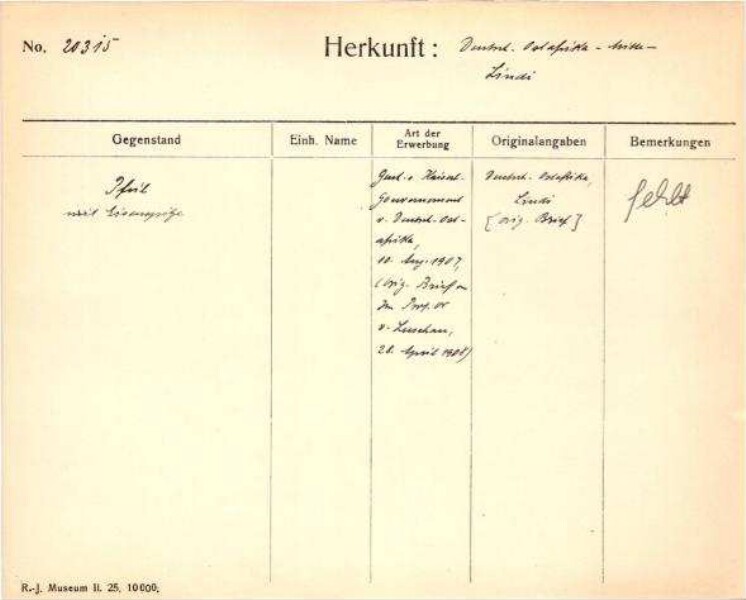 No. 20315
Herkunft: Deutsch. Ostafrika –
Lindi
Gegenstand
Einh. Name
Art der
Erwerbung
Originalangaben
Bemerkungen
Pfeil
mit Eisenspitze
v. Kaiserl.
Gouvernement
v. Deutsch-Ost-
afrika,
10. Aug. 1907,
(Orig. Brief an
den Prof. Dr
v. Luschan,
28. April 1908)
Deutsch. Ostafrika,
Lindi
[orig. Brief]
fehlt
R.-J. Museum II. 25, 10000.